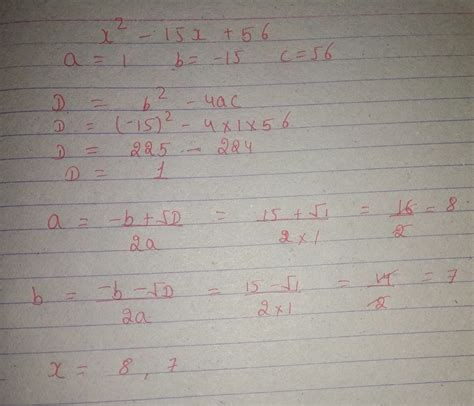 x² - 15x + 56
a = 1 b = -15 c = 56
D = b² - 4ac
D = (-15)² - 4×1×56
D = 225 - 224
D = 1
a = -b + √D / 2a = 15 + √1 / 2×1 = 16 / 2 = 8
b = -b - √D / 2a = 15 - √1 / 2×1 = 14 / 2 = 7
x = 8, 7